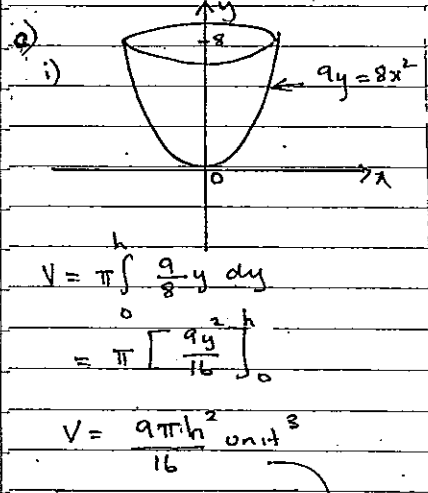 y
a)
8
i)
9y = 8x²
0
x
V = π∫₀ʰ 9/8 y dy
= π [9y²/16]₀ʰ
V = 9πh²/16 unit³